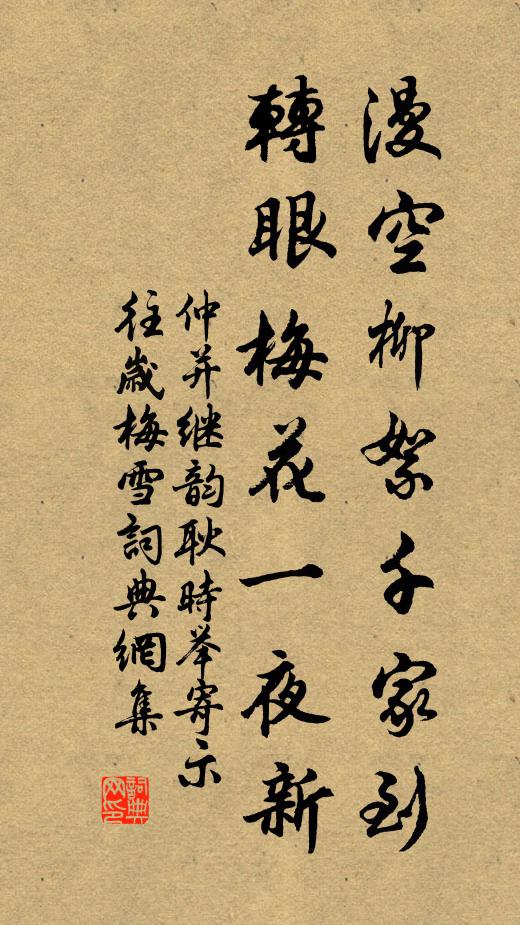 漫空柳絮千家到
轉眼梅花一夜新
仲并继韵耿時举寄示
往歲梅雪詞典網集
詞典
网印